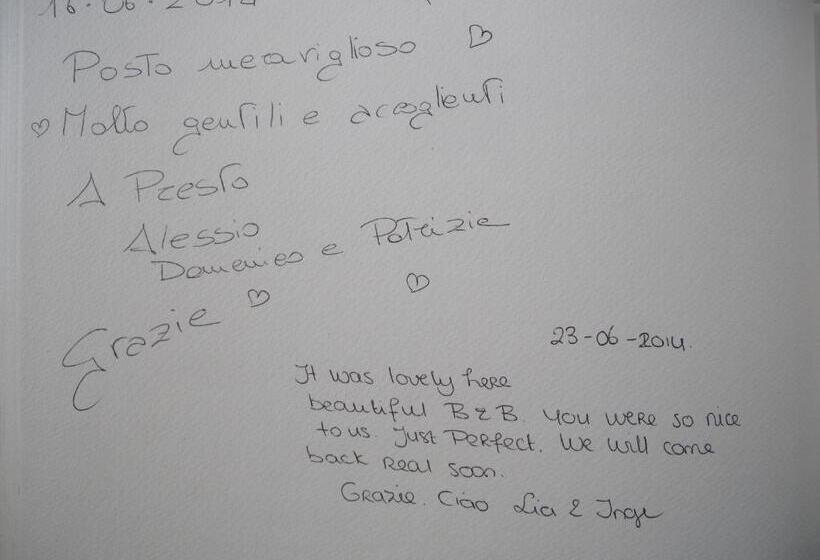 16.06.2014
Posto meraviglioso
Molto gentili e accoglienti
A Presto
Alessio
Domenico e Patrizia
Grazie
23-06-2014.
It was lovely here
beautiful B & B. You were so nice
to us. Just Perfect. We will come
back real soon.
Grazie. Ciao Lia & Inge